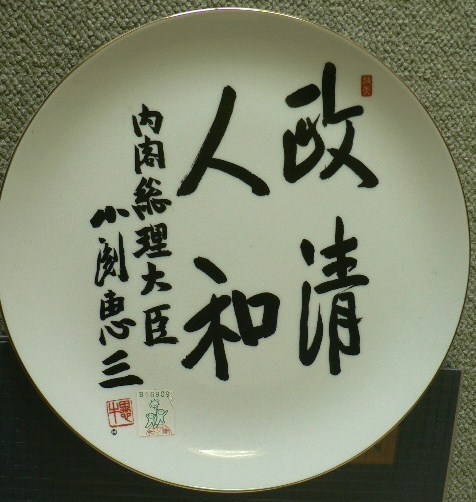 政清
人和
内閣総理大臣
小渕恵三